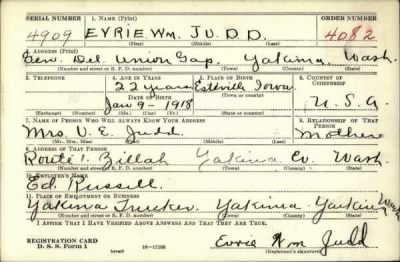 SERIAL NUMBER 1. NAME (Print) ORDER NUMBER
4909 EVRIE. Wm. JUDD. 4082
(First) (Middle) (Last)
2. ADDRESS (Print)
Gen. Del Union Gap. Yakima, Wash.
(Number and street or R. F. D. number) (Town) (County) (State)
3. TELEPHONE 4. AGE IN YEARS 5. PLACE OF BIRTH 6. COUNTRY OF CITIZENSHIP
22 years Estherville Iowa
DATE OF BIRTH (Town or county)
Jan 9- 1918 U.S.A
(Exchange) (No.) (Mo.) (Day) (Yr.) (State or country)
7. NAME OF PERSON WHO WILL ALWAYS KNOW YOUR ADDRESS 8. RELATIONSHIP OF THAT PERSON
Mrs. V. E. Judd Mother
(Mr., Mrs., Miss) (First) (Middle) (Last)
9. ADDRESS OF THAT PERSON
Route 1. Zillah Yakima Co. Wash.
(Number and street or R. F. D. number) (Town) (County) (State)
10. EMPLOYER'S NAME
Ed. Russell.
11. PLACE OF EMPLOYMENT OR BUSINESS
Yakima Yakima Wash
(Number and street or R. F. D. number) (Town) (County) (State)
I AFFIRM THAT I HAVE VERIFIED ABOVE ANSWERS AND THAT THEY ARE TRUE.
REGISTRATION CARD
D. S. S. Form 1 (over) 16—17105 Evrie Wm Judd
(Registrant's signature)